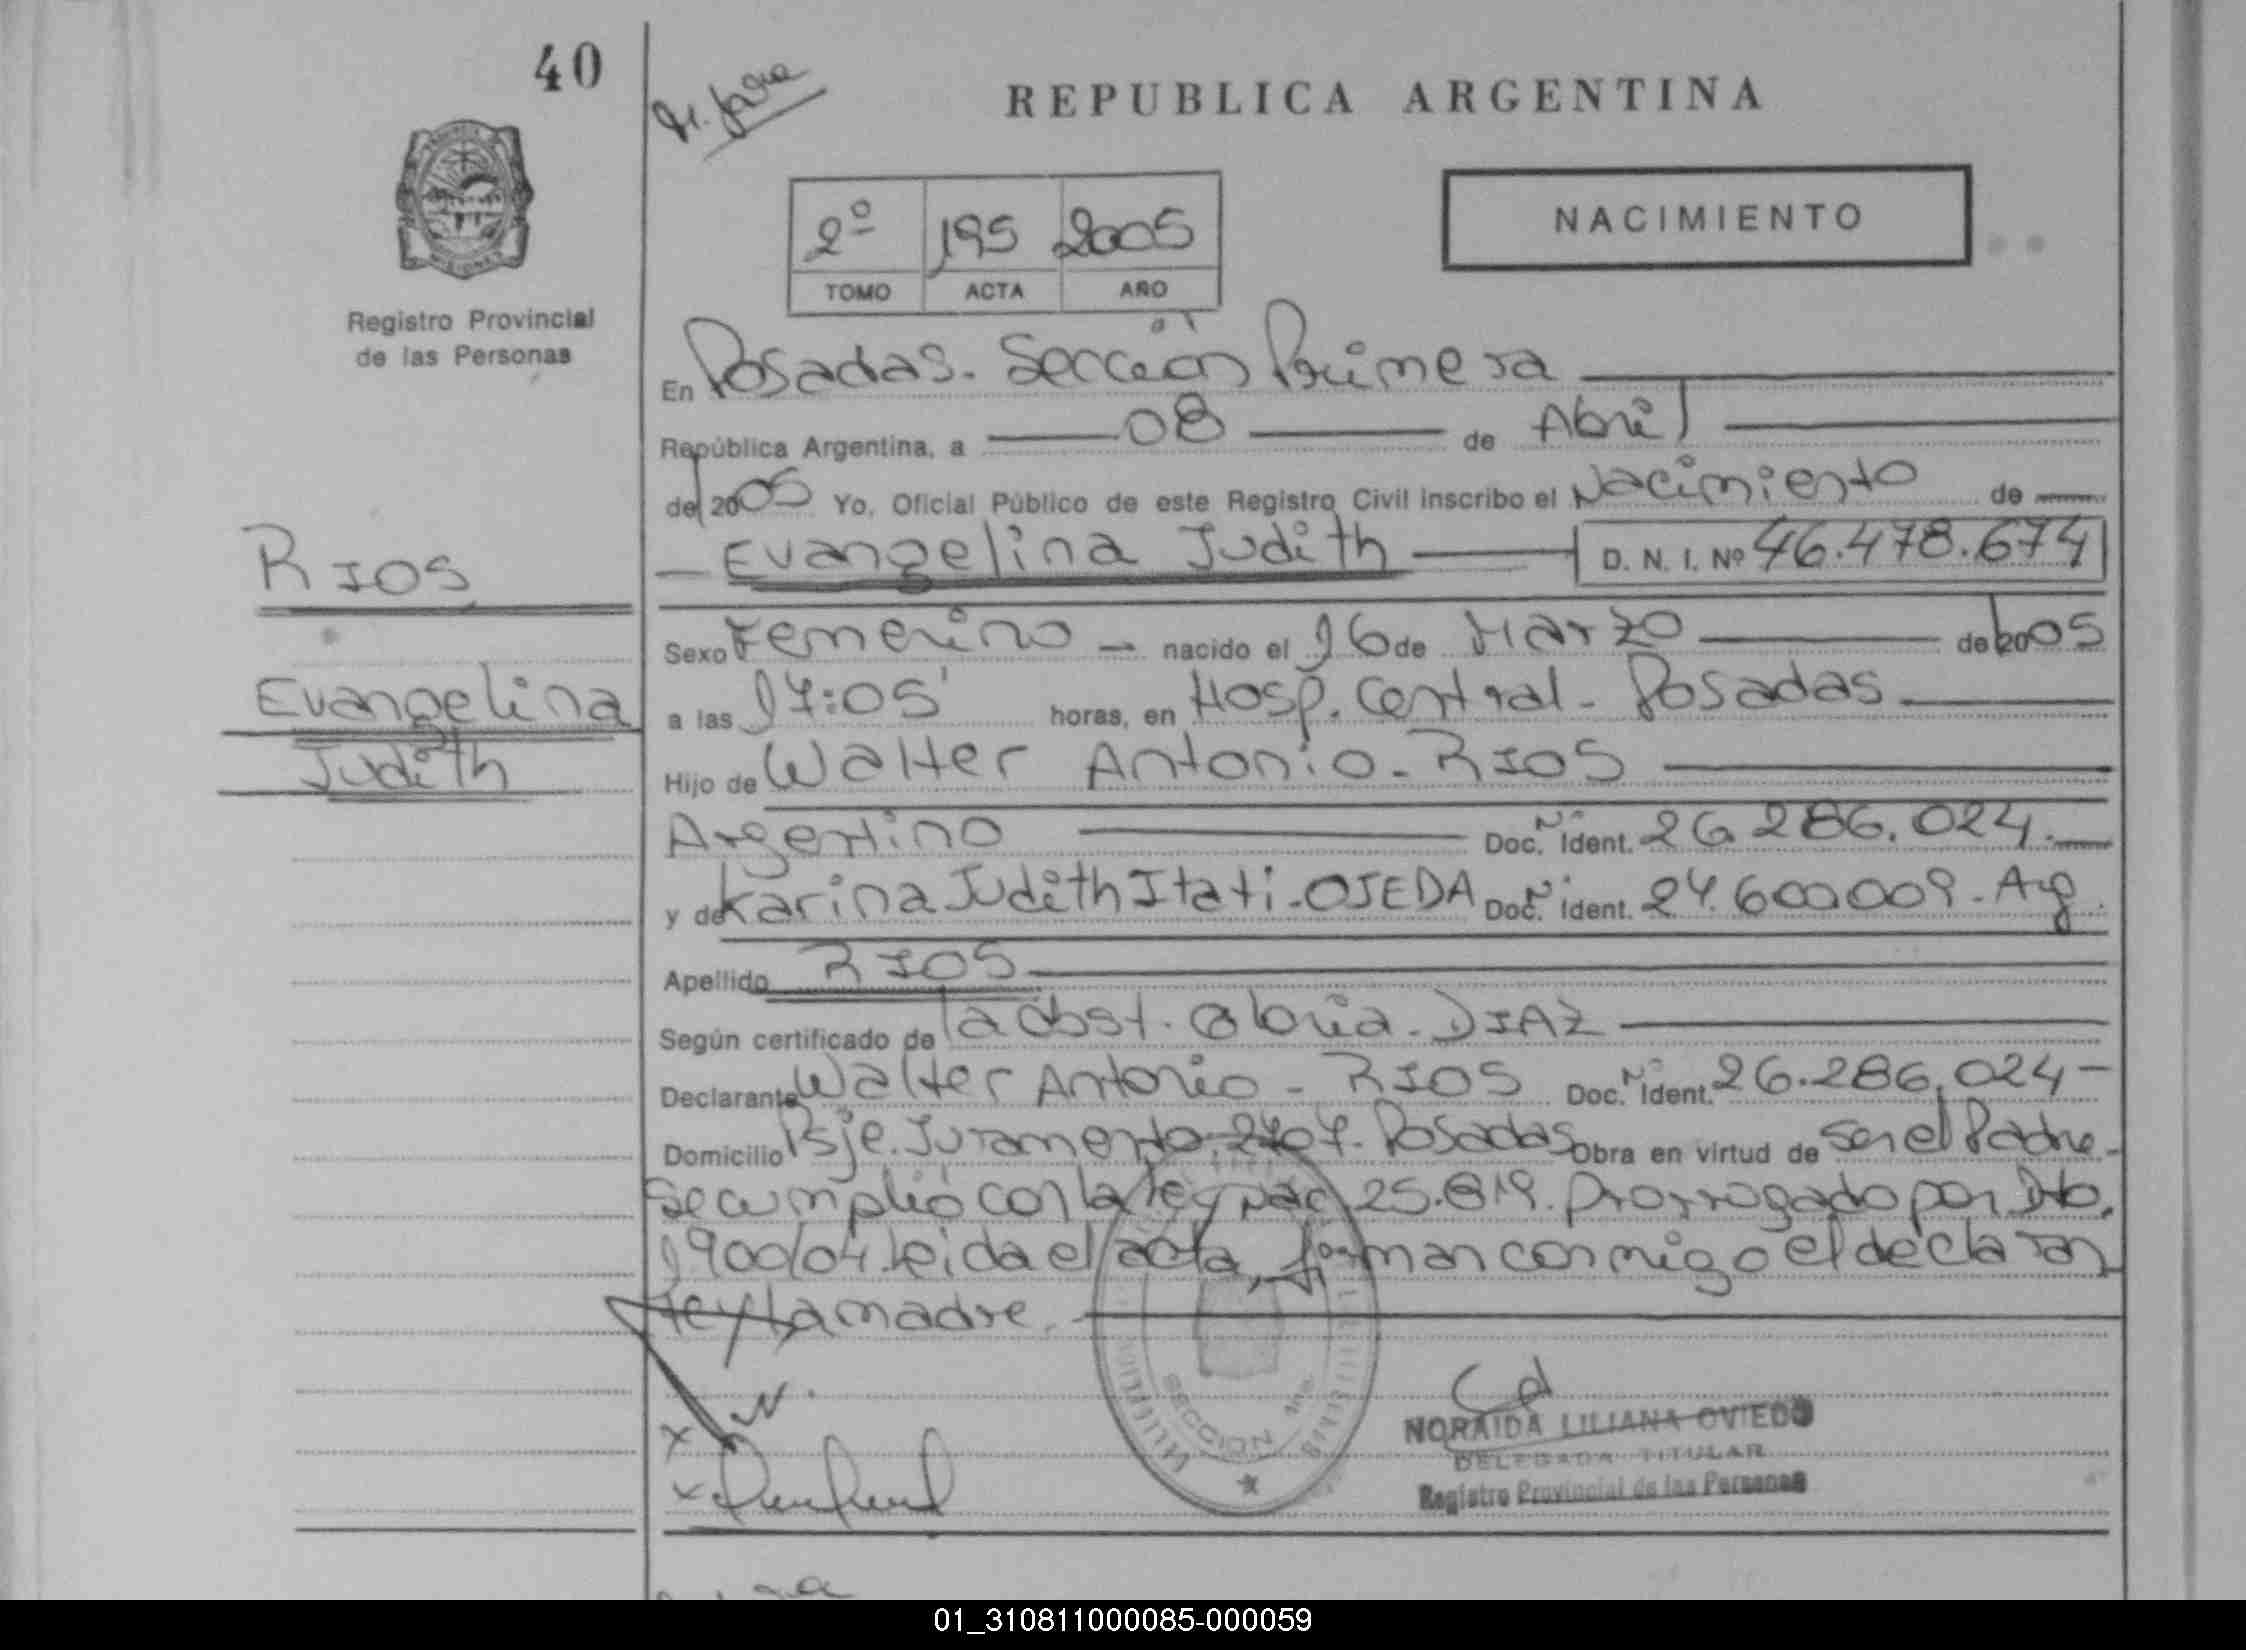 40
REPUBLICA ARGENTINA
2º 195 2005
TOMO ACTA AÑO
NACIMIENTO
MISIONES
Registro Provincial
de las Personas
En Posadas. Sección Primera
República Argentina, a 08 de Abril
del 2005 Yo, Oficial Público de este Registro Civil inscribo el Nacimiento de
Evangelina Judith D. N. I. Nº 46.478.674
RIOS
Sexo Femenino nacido el 16 de Marzo del 2005
Evangelina
a las 17:05' horas, en Hosp. Central - Posadas
Judith
Hijo de Walter Antonio - RIOS
Argentino Doc. Nº Ident. 26.286.024.
y de Karina Judith Itati - OJEDA Doc. Nº Ident. 24.600.009 - Arg.
Apellido RIOS
Según certificado de la obst. Gloria - DIAZ
Declarante Walter Antonio - RIOS Doc. Nº Ident. 26.286.024 -
Domicilio Psje. Juramento. Posadas Obra en virtud de ser el Padre -
se cumplió con la ley nac 25.819. prorrogado por Dto.
1900/04. Leida el acta, firman conmigo el declaran
te y la madre.
SECCION 1ra
NORAIDA LILIANA OVIEDO
DELEGADA TITULAR
Registro Provincial de las Personas
01_310811000085-000059